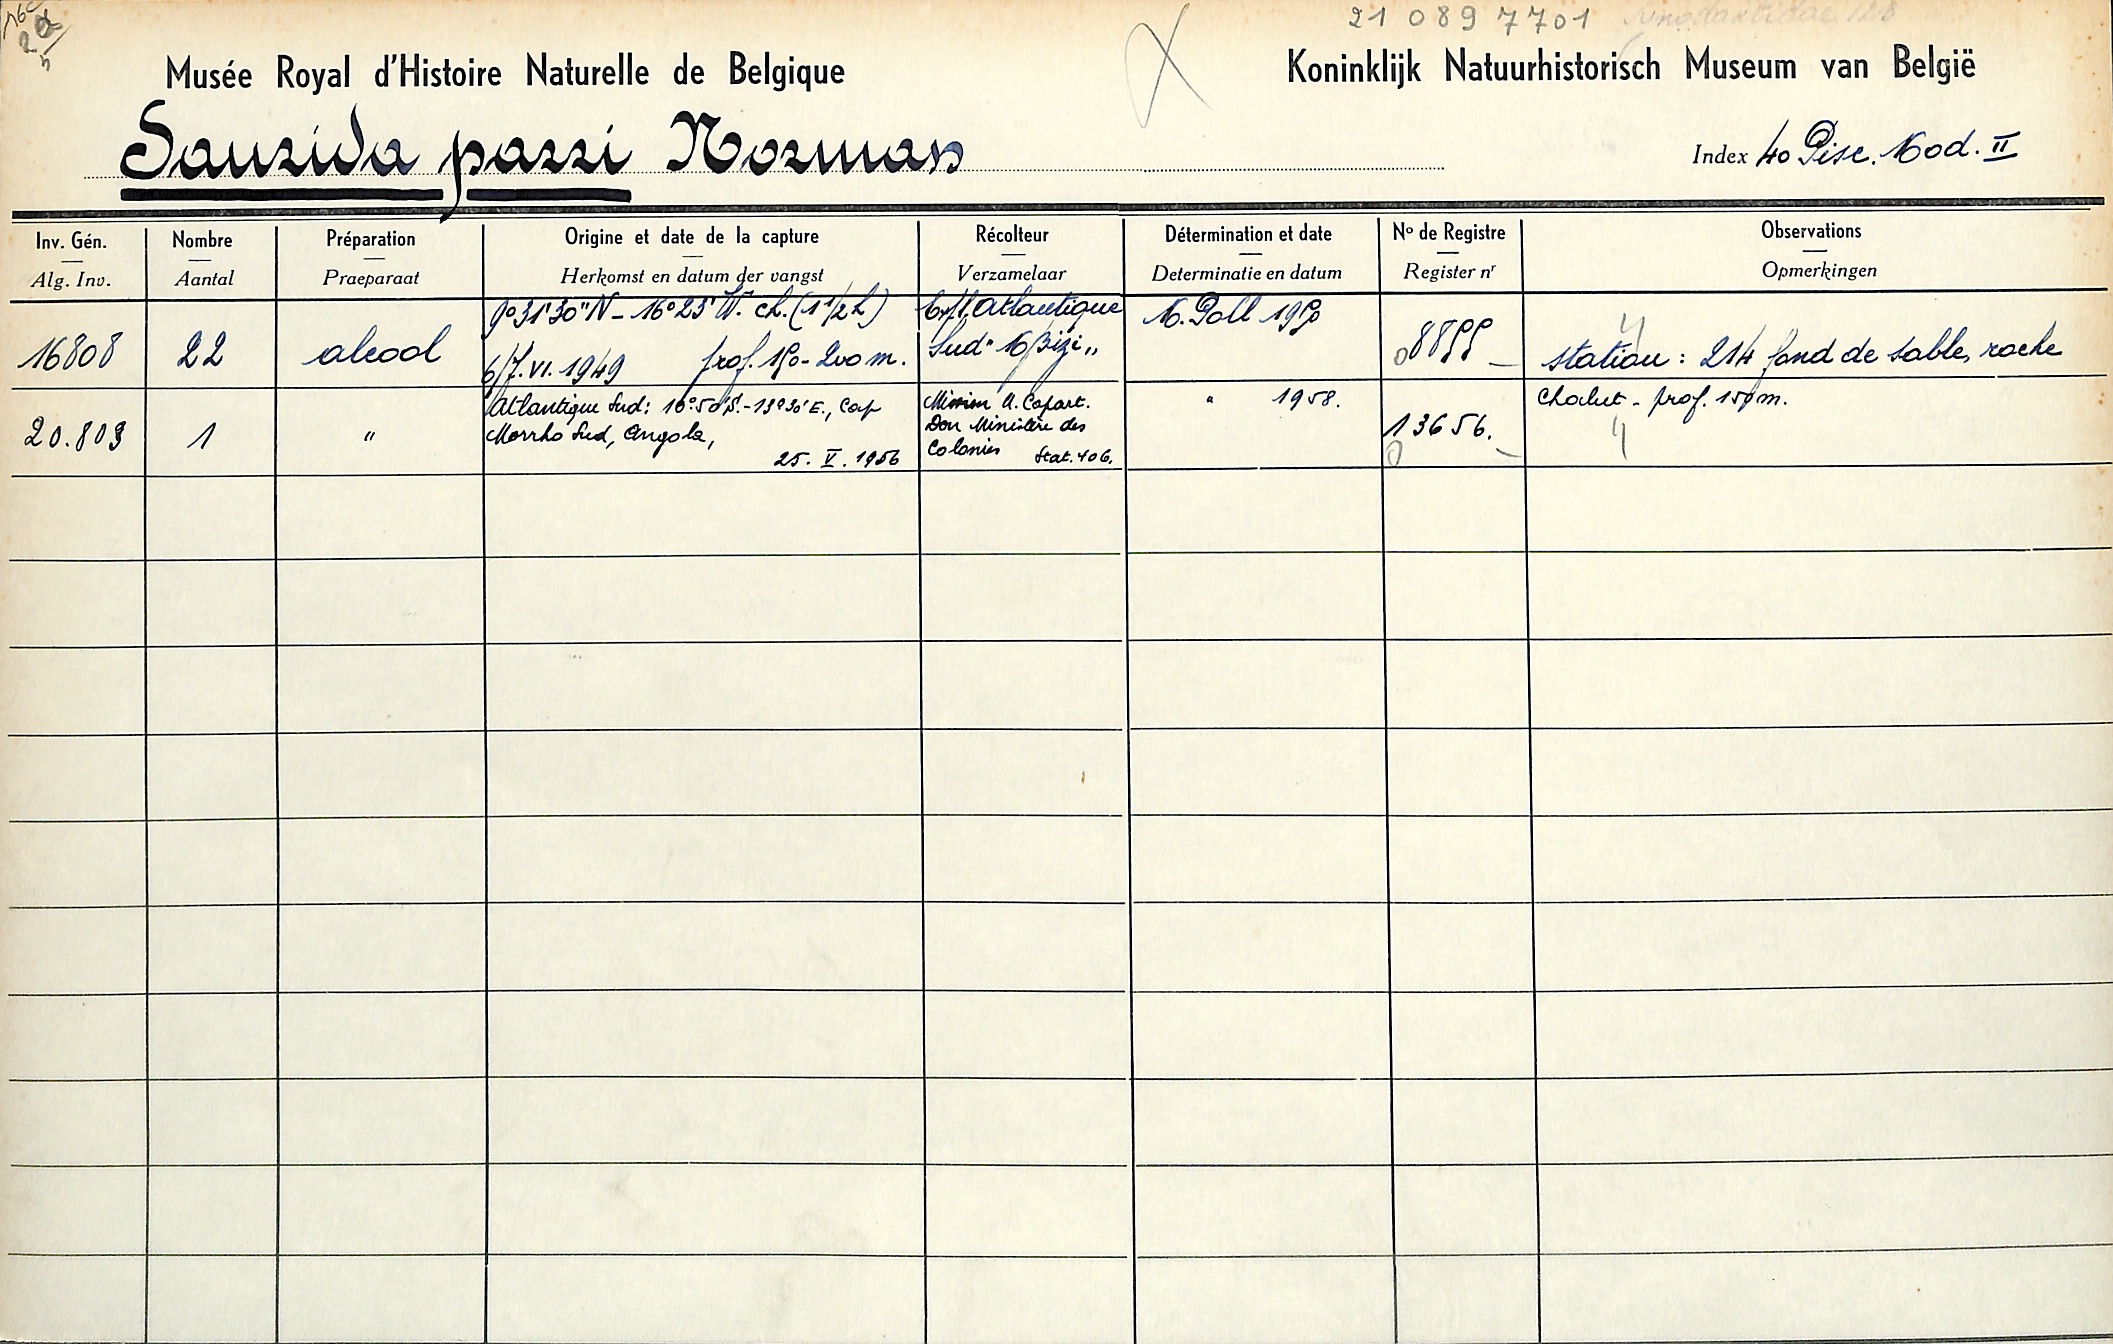 21 0897701 Synodontidae 128
Musée Royal d'Histoire Naturelle de Belgique
Koninklijk Natuurhistorisch Museum van België
Saurida parri Norman
Index 40 Pisc. Mod. II
Inv. Gén. Nombre Préparation Origine et date de la capture Récolteur Détermination et date No de Registre Observations
Alg. Inv. Aantal Praeparaat Herkomst en datum der vangst Verzamelaar Determinatie en datum Register nr Opmerkingen
9°31'30"N - 16°23'W. ch. (1 1/2 h) Exp. Atlantique M. Poll 1950
16808 22 alcool 6/7.VI.1949 prof. 150-200 m. Sud "Mbizi" 8855 station: 214 fond de sable, roche
Atlantique Sud: 10°50'S.-13°30'E., Cap Mission A. Capart. " 1958. Chalut - prof. 150 m.
20.803 1 " Morrho Sud, Angola, Don Ministère des 13656.
25. V. 1956 Colonies Stat. 406.